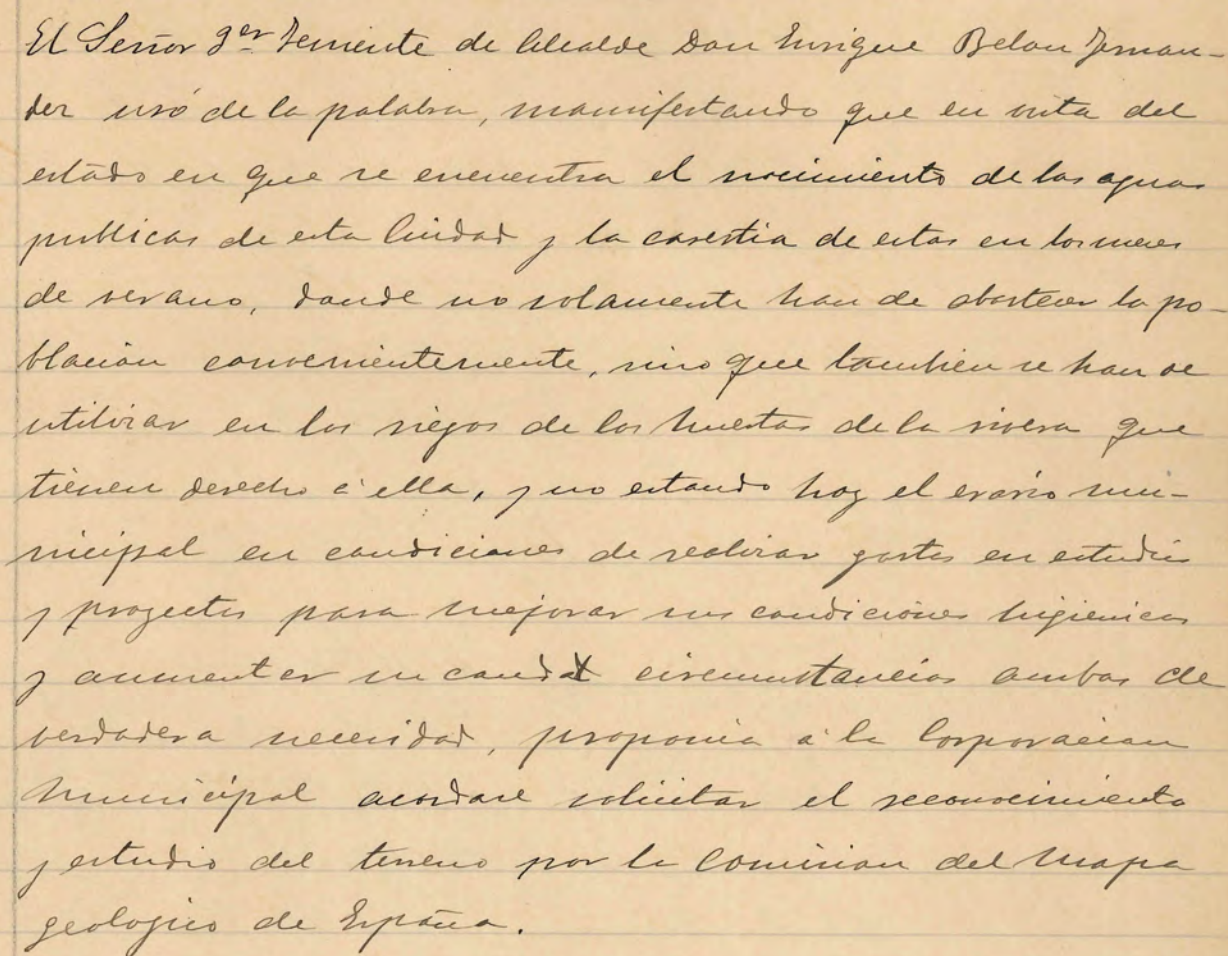 El Señor 3er Teniente de Alcalde Don Enrique Belan Fernan-
dez usó de la palabra, manifestando que en vista del
estado en que se encuentra el nacimiento de las aguas
publicas de esta Ciudad y la carestia de estas en los meses
de verano, donde no solamente han de abastecer la po-
blacion convenientemente, sino que tambien se han de
utilizar en los riegos de las huertas de la rivera que
tienen derecho á ella, y no estando hoy el erario mu-
nicipal en condiciones de realizar gastos en estudios
y proyectos para mejorar sus condiciones higienicas
y aumentar su caudal circunstancias ambas de
verdadera necesidad, proponia á la Corporacion
Municipal acordase solicitar el reconocimiento
y estudio del terreno por la Comision del Mapa
geologico de España.